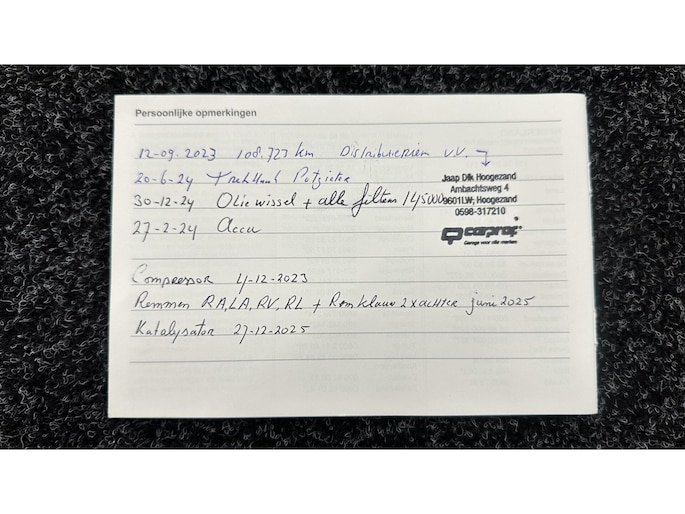 Persoonlijke opmerkingen
12-09-2023 108.727 km Distributieriem V.V.
20-6-24 Trekhaak
30-12-24 Oliewissel + alle filters 145000
27-2-24 Accu
Jaap Dik Hoogezand
Ambachtsweg 4
9601LW, Hoogezand
0598-317210
carprof
Garage voor alle merken
Compressor 4-12-2023
Remmen RA, LA, RV, RL + Remklauw 2x achter juni 2025
Katalysator 27-12-2025